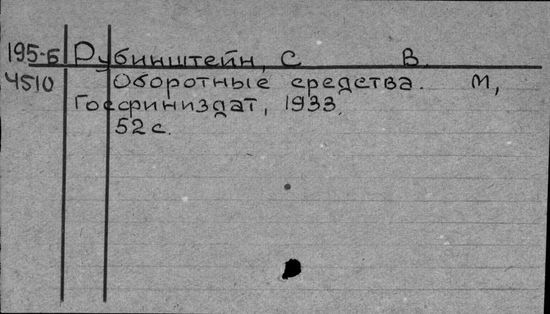 195-Б Рубинштейн, С В.
4510 Оборотные средства. М,
Госфиниздат, 1933
52 с.